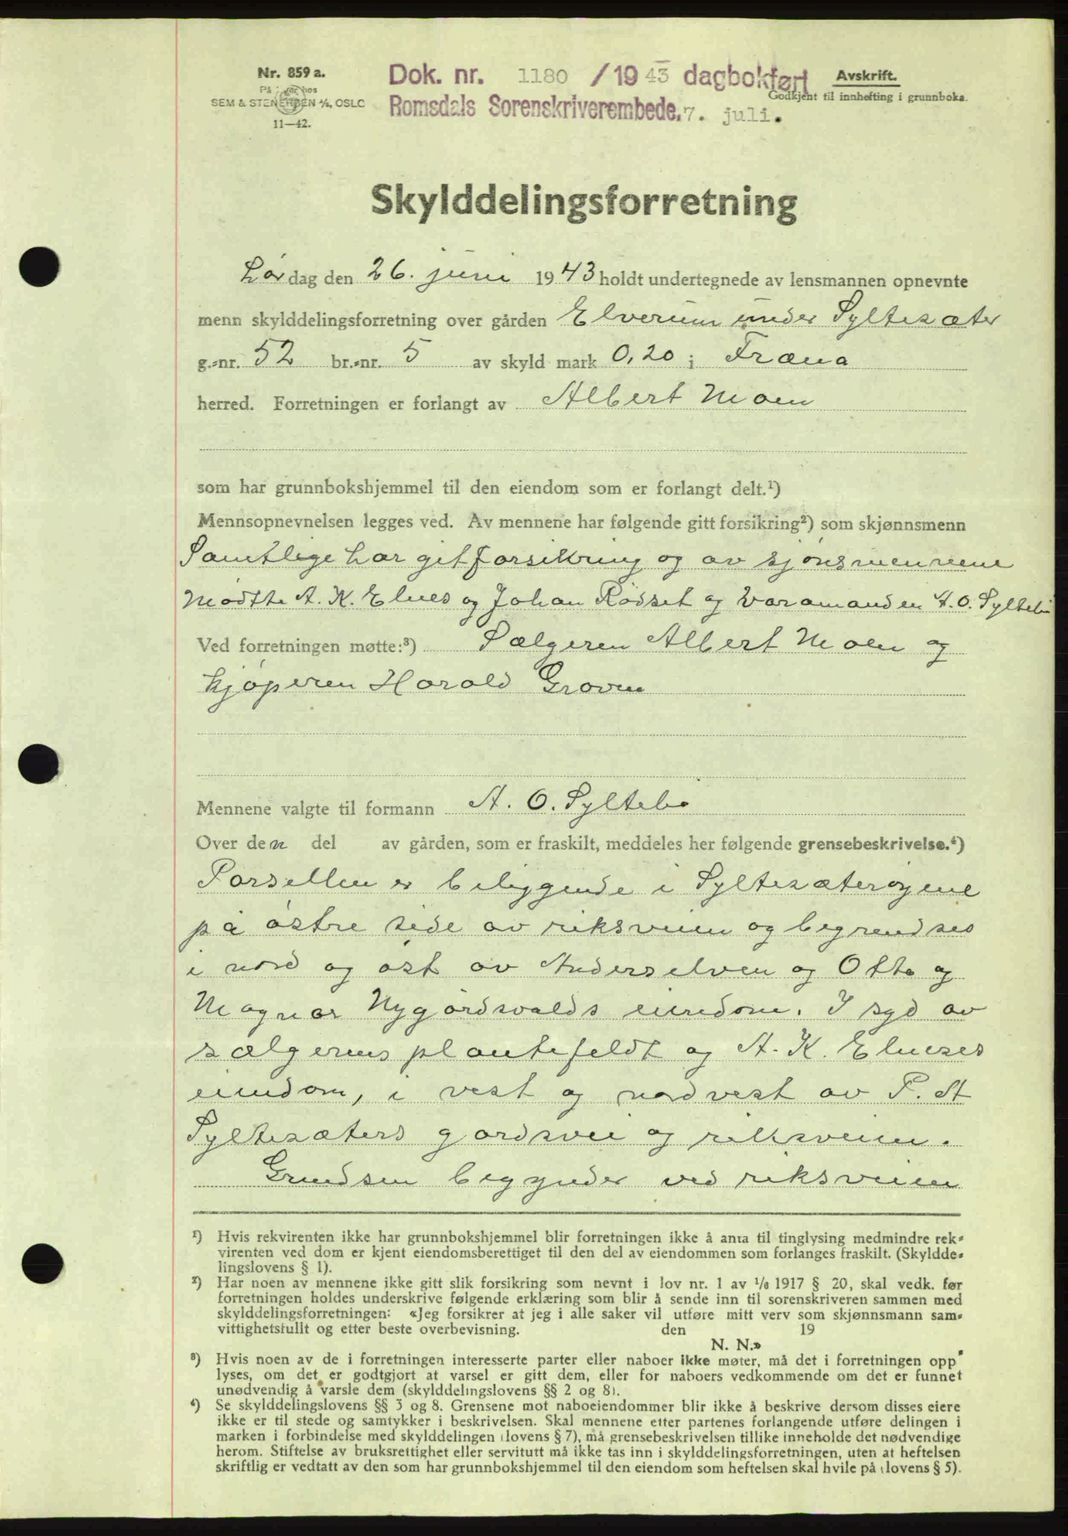 Nr. 859 a.
SEM & STENERSEN A/S, OSLO
11—42.
Dok. nr. 1180 /1943 dagbokført
Romsdals Sorenskriverembede. 7. juli.
Avskrift.
Godkjent til innhefting i grunnboka.
Skylddelingsforretning
Lørdag den 26. juni 1943 holdt undertegnede av lensmannen opnevnte
menn skylddelingsforretning over gården Elverum under Syltesæter
g.-nr. 52 br.-nr. 5 av skyld mark 0,20 i Fræna
herred. Forretningen er forlangt av Albert Moen
som har grunnbokshjemmel til den eiendom som er forlangt delt.¹)
Mennsopnevnelsen legges ved. Av mennene har følgende gitt forsikring²) som skjønnsmenn
Samtlige har git forsikring og av sjønsmennene
møtte A. K. Elnes og Johan Rødset og varamanden A. O. Syltebø
Ved forretningen møtte:³) Sælgeren Albert Moen og
kjøperen Harald Groven
Mennene valgte til formann A. O. Syltebø
Over den del av gården, som er fraskilt, meddeles her følgende grensebeskrivelse.⁴)
Parsellen er beliggende i Syltesæterøyene
på østre side av riksveien og begrendses
i nord og øst av Anderselven og Otto og
Magnar Nygårdsvolds eiendom. I syd av
sælgerens plantefeldt og A. K. Elneses
eiendom, i vest og nordvest av P. A
Syltesæters gårdsvei og riksveien.
Grendsen begynder ved riksveien
¹) Hvis rekvirenten ikke har grunnbokshjemmel blir forretningen ikke å anta til tinglysing medmindre rek-
virenten ved dom er kjent eiendomsberettiget til den del av eiendommen som forlanges fraskilt. (Skyldde-
lingslovens § 1).
²) Har noen av mennene ikke gitt slik forsikring som nevnt i lov nr. 1 av 1/6 1917 § 20, skal vedk. før
forretningen holdes underskrive følgende erklæring som blir å sende inn til sorenskriveren sammen med
skylddelingsforretningen: «Jeg forsikrer at jeg i alle saker vil utføre mitt verv som skjønnsmann sam-
vittighetsfullt og etter beste overbevisning. den 19
N. N.»
³) Hvis noen av de i forretningen interesserte parter eller naboer ikke møter, må det i forretningen opp-
lyses, om det er godtgjort at varsel er gitt dem, eller for naboers vedkommende om det er funnet
unødvendig å varsle dem (skylddelingslovens §§ 2 og 8).
⁴) Se skylddelingslovens §§ 3 og 8. Grensene mot naboeiendommer blir ikke å beskrive dersom disses eiere
ikke er til stede og samtykker i beskrivelsen. Skal mennene etter partenes forlangende utføre delingen i
marken i forbindelse med skylddelingen (lovens § 7), må grensebeskrivelsen tillike inneholde det nødvendige
herom. Stiftelse av bruksrettighet eller servitutt må ikke tas inn i skylddelingsforretningen, uten at heftelsen
skriftlig er vedtatt av den som har grunnbokshjemmel til den eiendom som heftelsen skal hvile på (lovens § 5).